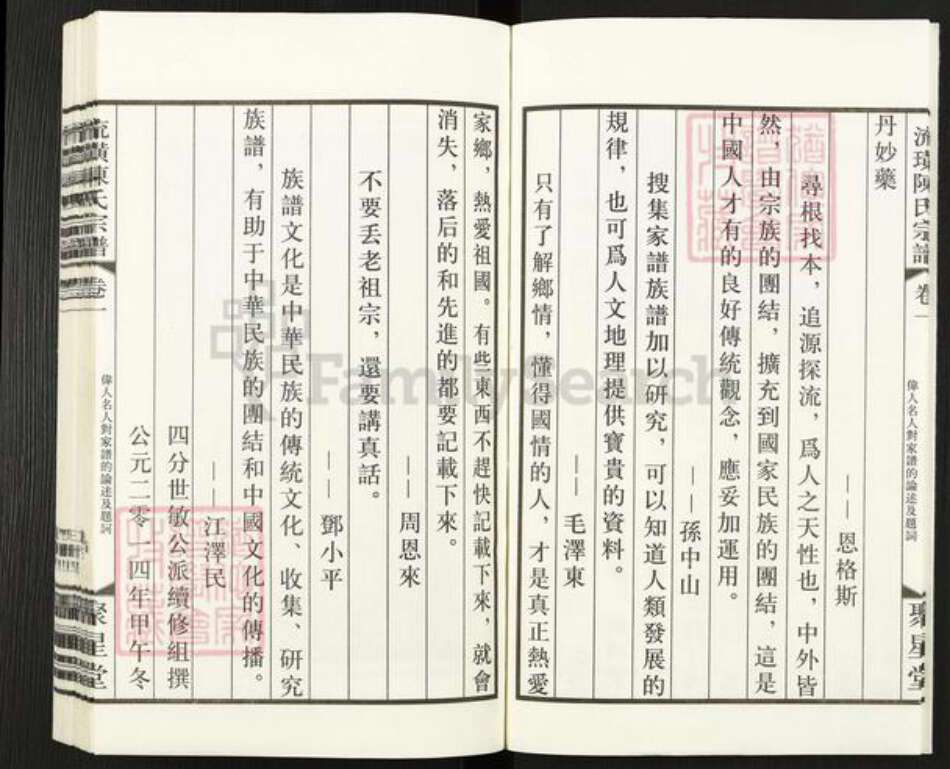 流璜陳氏宗譜
卷一
偉人名人對家譜的論述及題詞
聚星堂
丹妙藥
——恩格斯
尋根找本，追源探流，爲人之天性也，中外皆
然，由宗族的團結，擴充到國家民族的團結，這是
中國人才有的良好傳統觀念，應妥加運用。
——孫中山
搜集家譜族譜加以研究，可以知道人類發展的
規律，也可爲人文地理提供寶貴的資料。
——毛澤東
只有了解鄉情，懂得國情的人，才是真正熱愛
家鄉，熱愛祖國。有些東西不趕快記載下來，就會
消失，落后的和先進的都要記載下來。
——周恩來
不要丟老祖宗，還要講真話。
——鄧小平
族譜文化是中華民族的傳統文化、收集、研究
族譜，有助于中華民族的團結和中國文化的傳播。
——江澤民
四分世敏公派續修組撰
公元二零一四年甲午冬
流璜陳氏宗譜
卷一
偉人名人對家譜的論述及題詞
聚星堂
FamilySearch